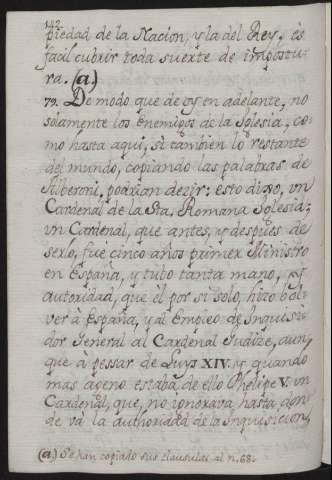 142
piedad de la Nacion, y la del Rey, es
facil cubrir toda suerte de impostu
ra. (a)
79. De modo que de oy en adelante, no
sòlamente los Enemigos de la Iglesia, co
mo hasta aqui, si tambien lo restante
del mundo, copiando las palabras de
Alberoni, podrian dezir: esto dixo, vn
Cardenal de la Sta. Romana Iglesia;
vn Cardenal, que antes, y despues de
serlo, fue cinco años primer Ministro
en España, y tubo tanta mano, y
autoridad, que èl por si solo, hizo bol
ver à España, y al Empleo de Inquisi
dor General al Cardenal Iudize, aun
que à pessar de Luys XIV. y quando
mas ageno estaba de ello Phelipe V. vn
Cardenal, que, no ignorava hasta don
de và la authoridad de la Inquisicion,
(a.) Se han copiado sus clausulas al n. 68.